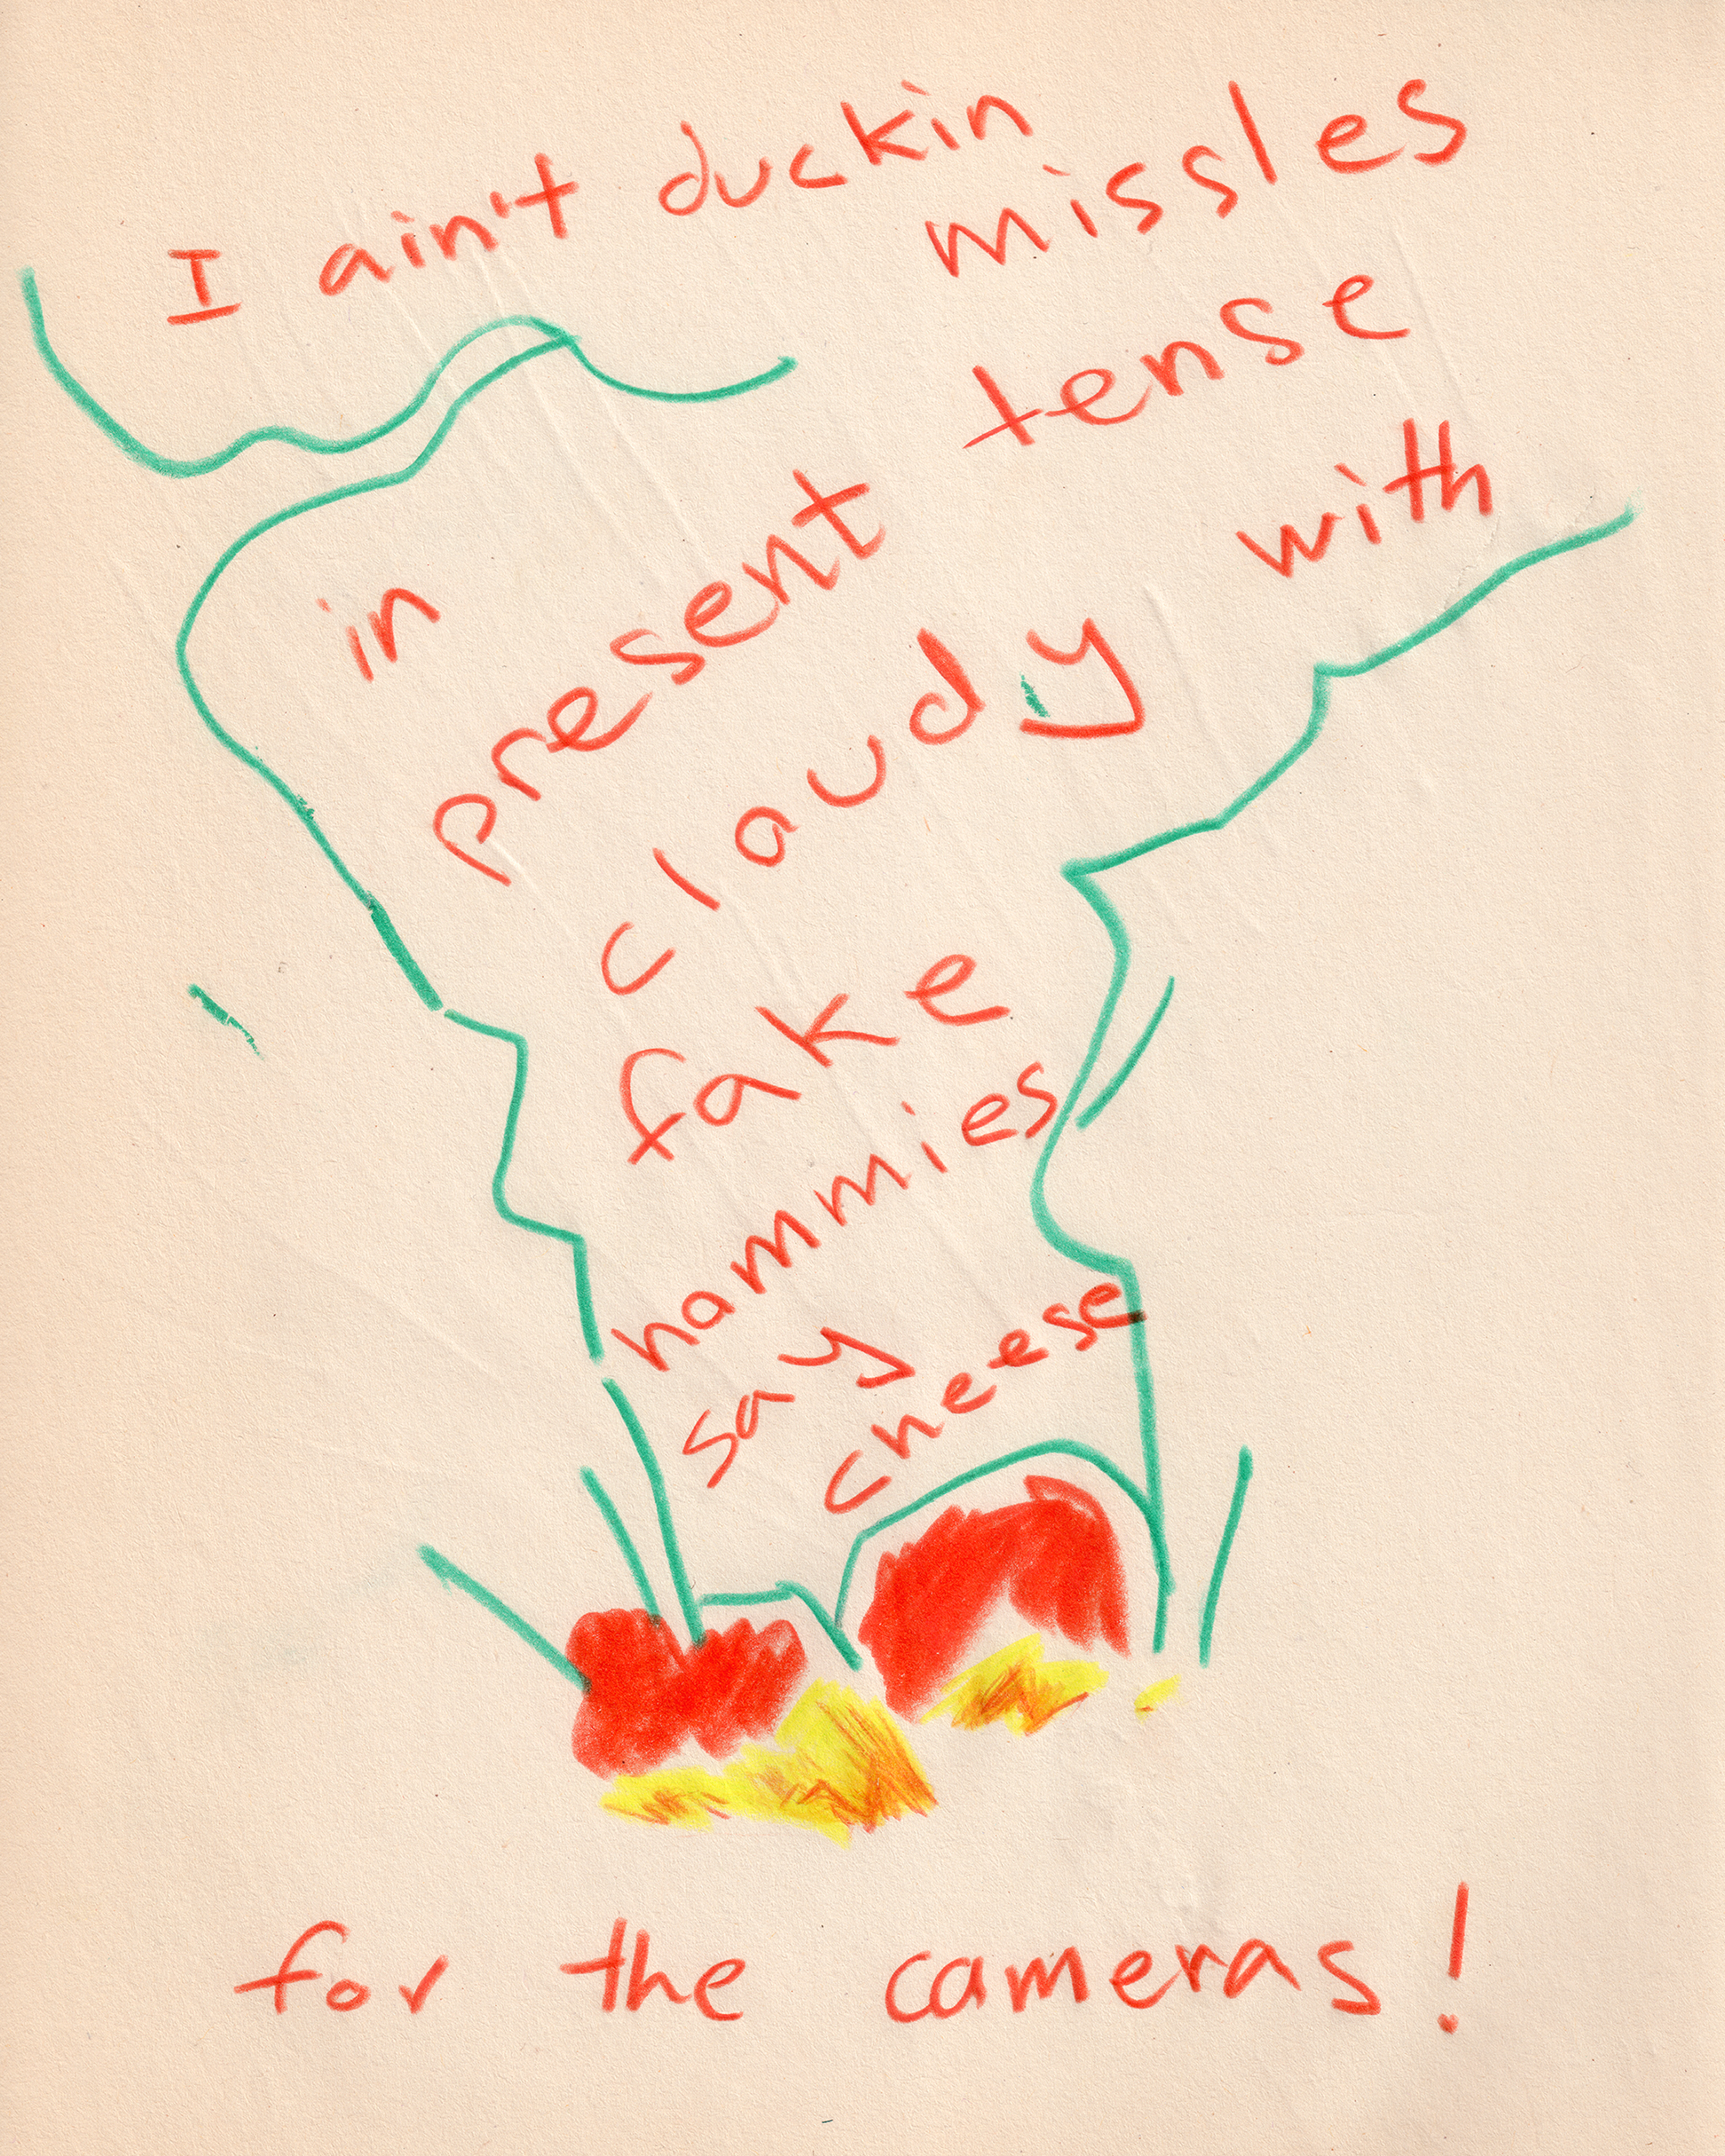 I ain't duckin
missles
in present tense
cloudy with
fake
hammies
say
cheese
for the cameras!